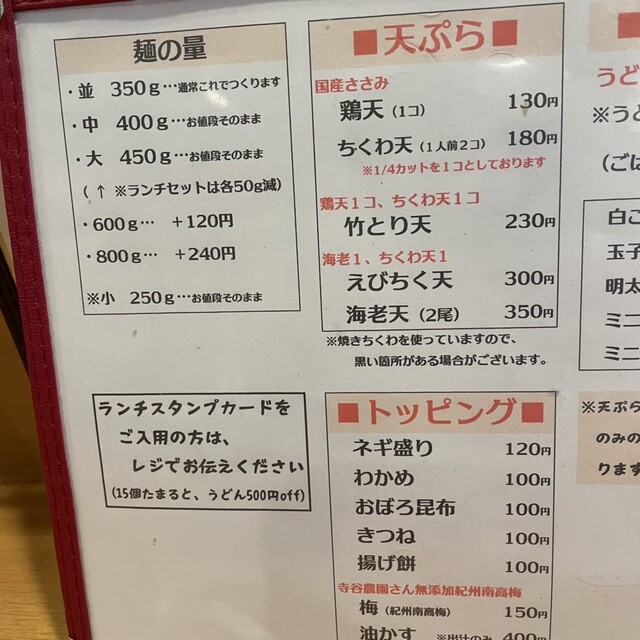 麺の量
・並　350g…通常これでつくります
・中　400g…お値段そのまま
・大　450g…お値段そのまま
（ ↑ ※ランチセットは各50g減）
・600g…　＋120円
・800g…　＋240円
※小　250g…お値段そのまま
ランチスタンプカードを
ご入用の方は、
レジでお伝えください
(15個たまると、うどん500円off)
■天ぷら■
国産ささみ
鶏天（1コ）　130円
ちくわ天（1人前２コ）　180円
※1/4カットを１コとしております
鶏天１コ、ちくわ天１コ
竹とり天　230円
海老１、ちくわ天１
えびちく天　300円
海老天（2尾）　350円
※焼きちくわを使っていますので、
黒い箇所がある場合がございます。
■トッピング■
ネギ盛り　120円
わかめ　100円
おぼろ昆布　100円
きつね　100円
揚げ餅　100円
寺谷農園さん無添加紀州南高梅
梅（紀州南高梅）　150円
油かす　※出汁のみ　400円
■
うど
※うど
（ごは
白ご
玉子
明太
ミニ
ミニ
※天ぷら
のみの
ります